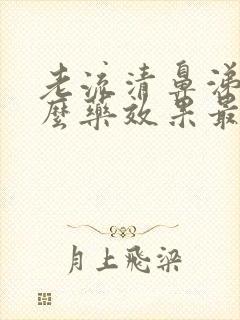 老流清鼻涕
麼藥效果最
月上飛梁